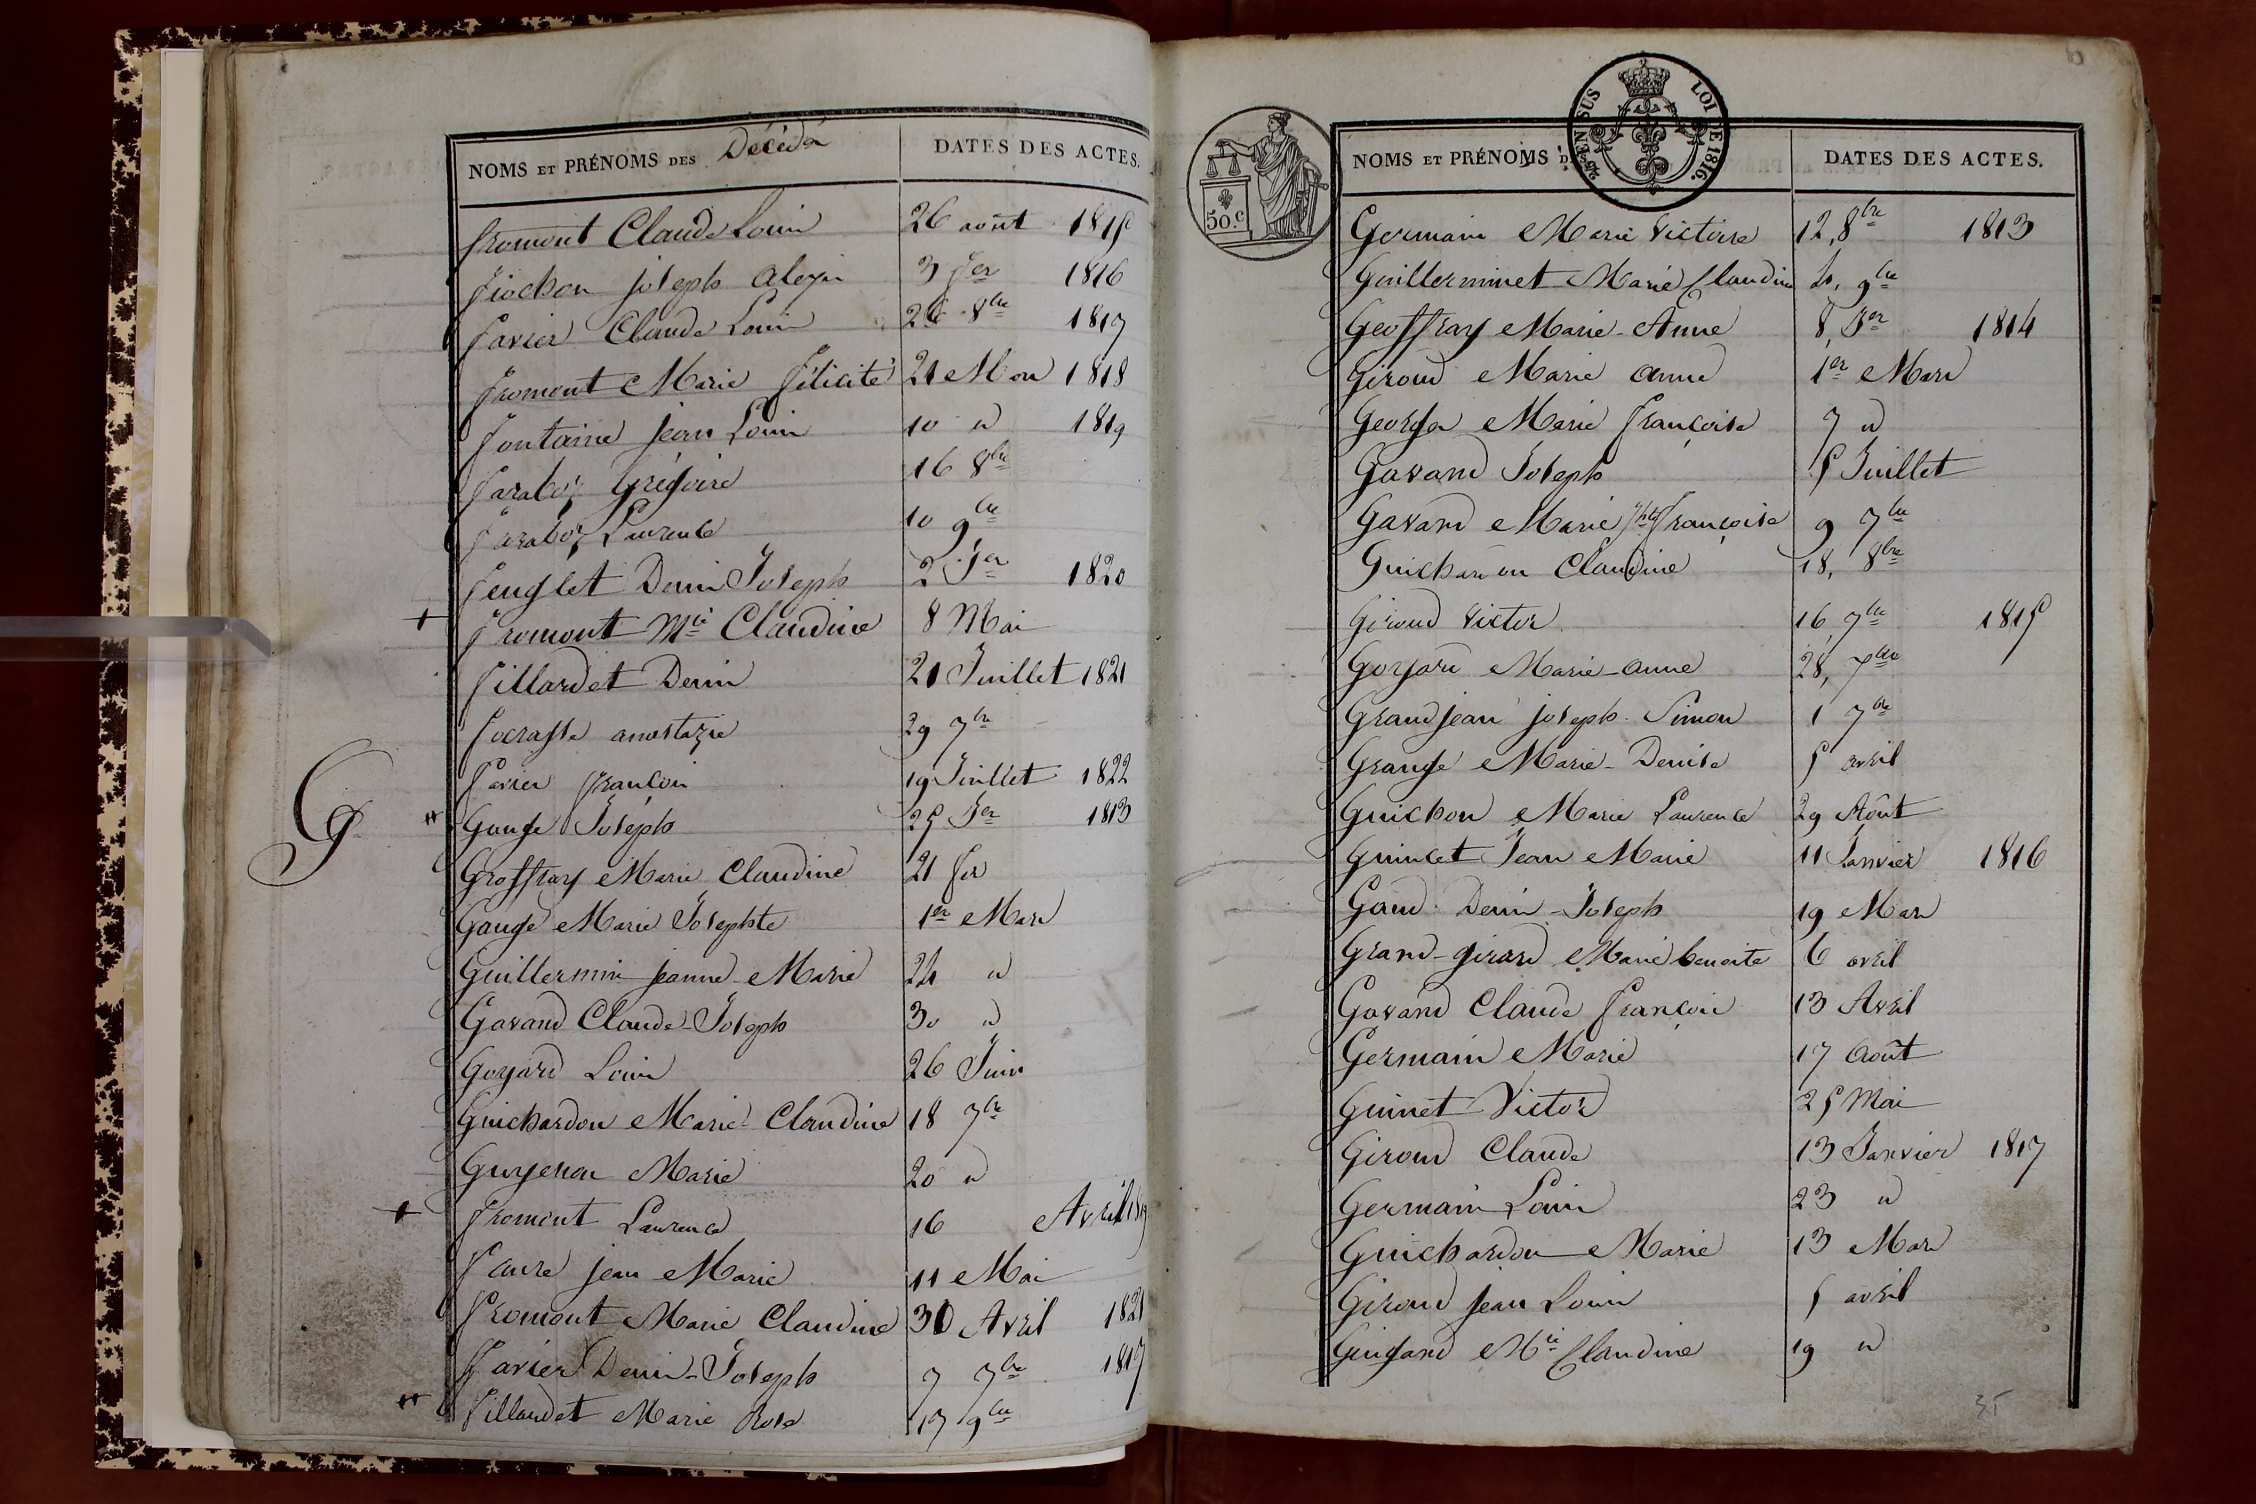 NOMS ET PRÉNOMS DES Décédés DATES DES ACTES.
fromont Claude Louis 26 août 1815
fiochon joseph alexis 3 fer 1816
favier Claude Louis 26 8bre 1817
fromont Marie félicité 21 Mars 1818
fontaine jean Louis 10 " 1819
faraboz Grégoire 16 8bre
faraboz Laurence 10 9bre
fenglet Denis Joseph 2 Jer 1820
fromont Mie Claudine 8 Mai
fillardet Denis 21 Juillet 1821
focrasse anastazie 29 7bre
favier françois 19 Juillet 1822
G
Gauge Joseph 25 Jer 1813
Groffray Marie Claudine 21 fer
Gauge Marie Josephte 1er Mars
Guillermin jeanne Marie 24 "
Gavand Claude-Joseph 30 "
Goyard Louis 26 Juin
Guichardon Marie Claudine 18 7bre
Guyenon Marie 20 "
fromont Laurence 16 Avril 1819
faure jean Marie 11 Mai
fromont Marie Claudine 30 Avril 1821
favier Denis-Joseph 7 7bre 1817
fillaudet Marie Rose 17 9bre
50.c
TIMB. EN SUS LOI DE 1816.
NOMS ET PRÉNOMS D DATES DES ACTES.
Germain Marie Victoire 12, 8bre 1813
Guillerminet Marie Claudine 4, 9bre
Geoffray Marie-Anne 8, Jer 1814
Giroud Marie anne 1er Mars
George Marie françoise 7 "
Gavand Joseph 5 Juillet
Gavand Marie Jhte françoise 9 7bre
Guichardon Claudine 18, 8bre
Giroud Victor 16, 9bre 1815
Goyard Marie-anne 28, 7bre
Grandjean joseph Simon 1 7bre
Grange Marie-Denise 5 avril
Guichon Marie Laurence 29 Août
Guincet Jean Marie 11 Janvier 1816
Gaud Denis-Joseph 19 Mars
Grand-girard Marie benoite 6 avril
Gavand Claude françois 13 Avril
Germain Marie 17 Août
Guinet Victor 25 Mai
Giroud Claude 13 Janvier 1817
Germain Louis 23 "
Guichardon Marie 13 Mars
Giroud jean Louis 5 avril
Guigand Mie Claudine 19 "
35